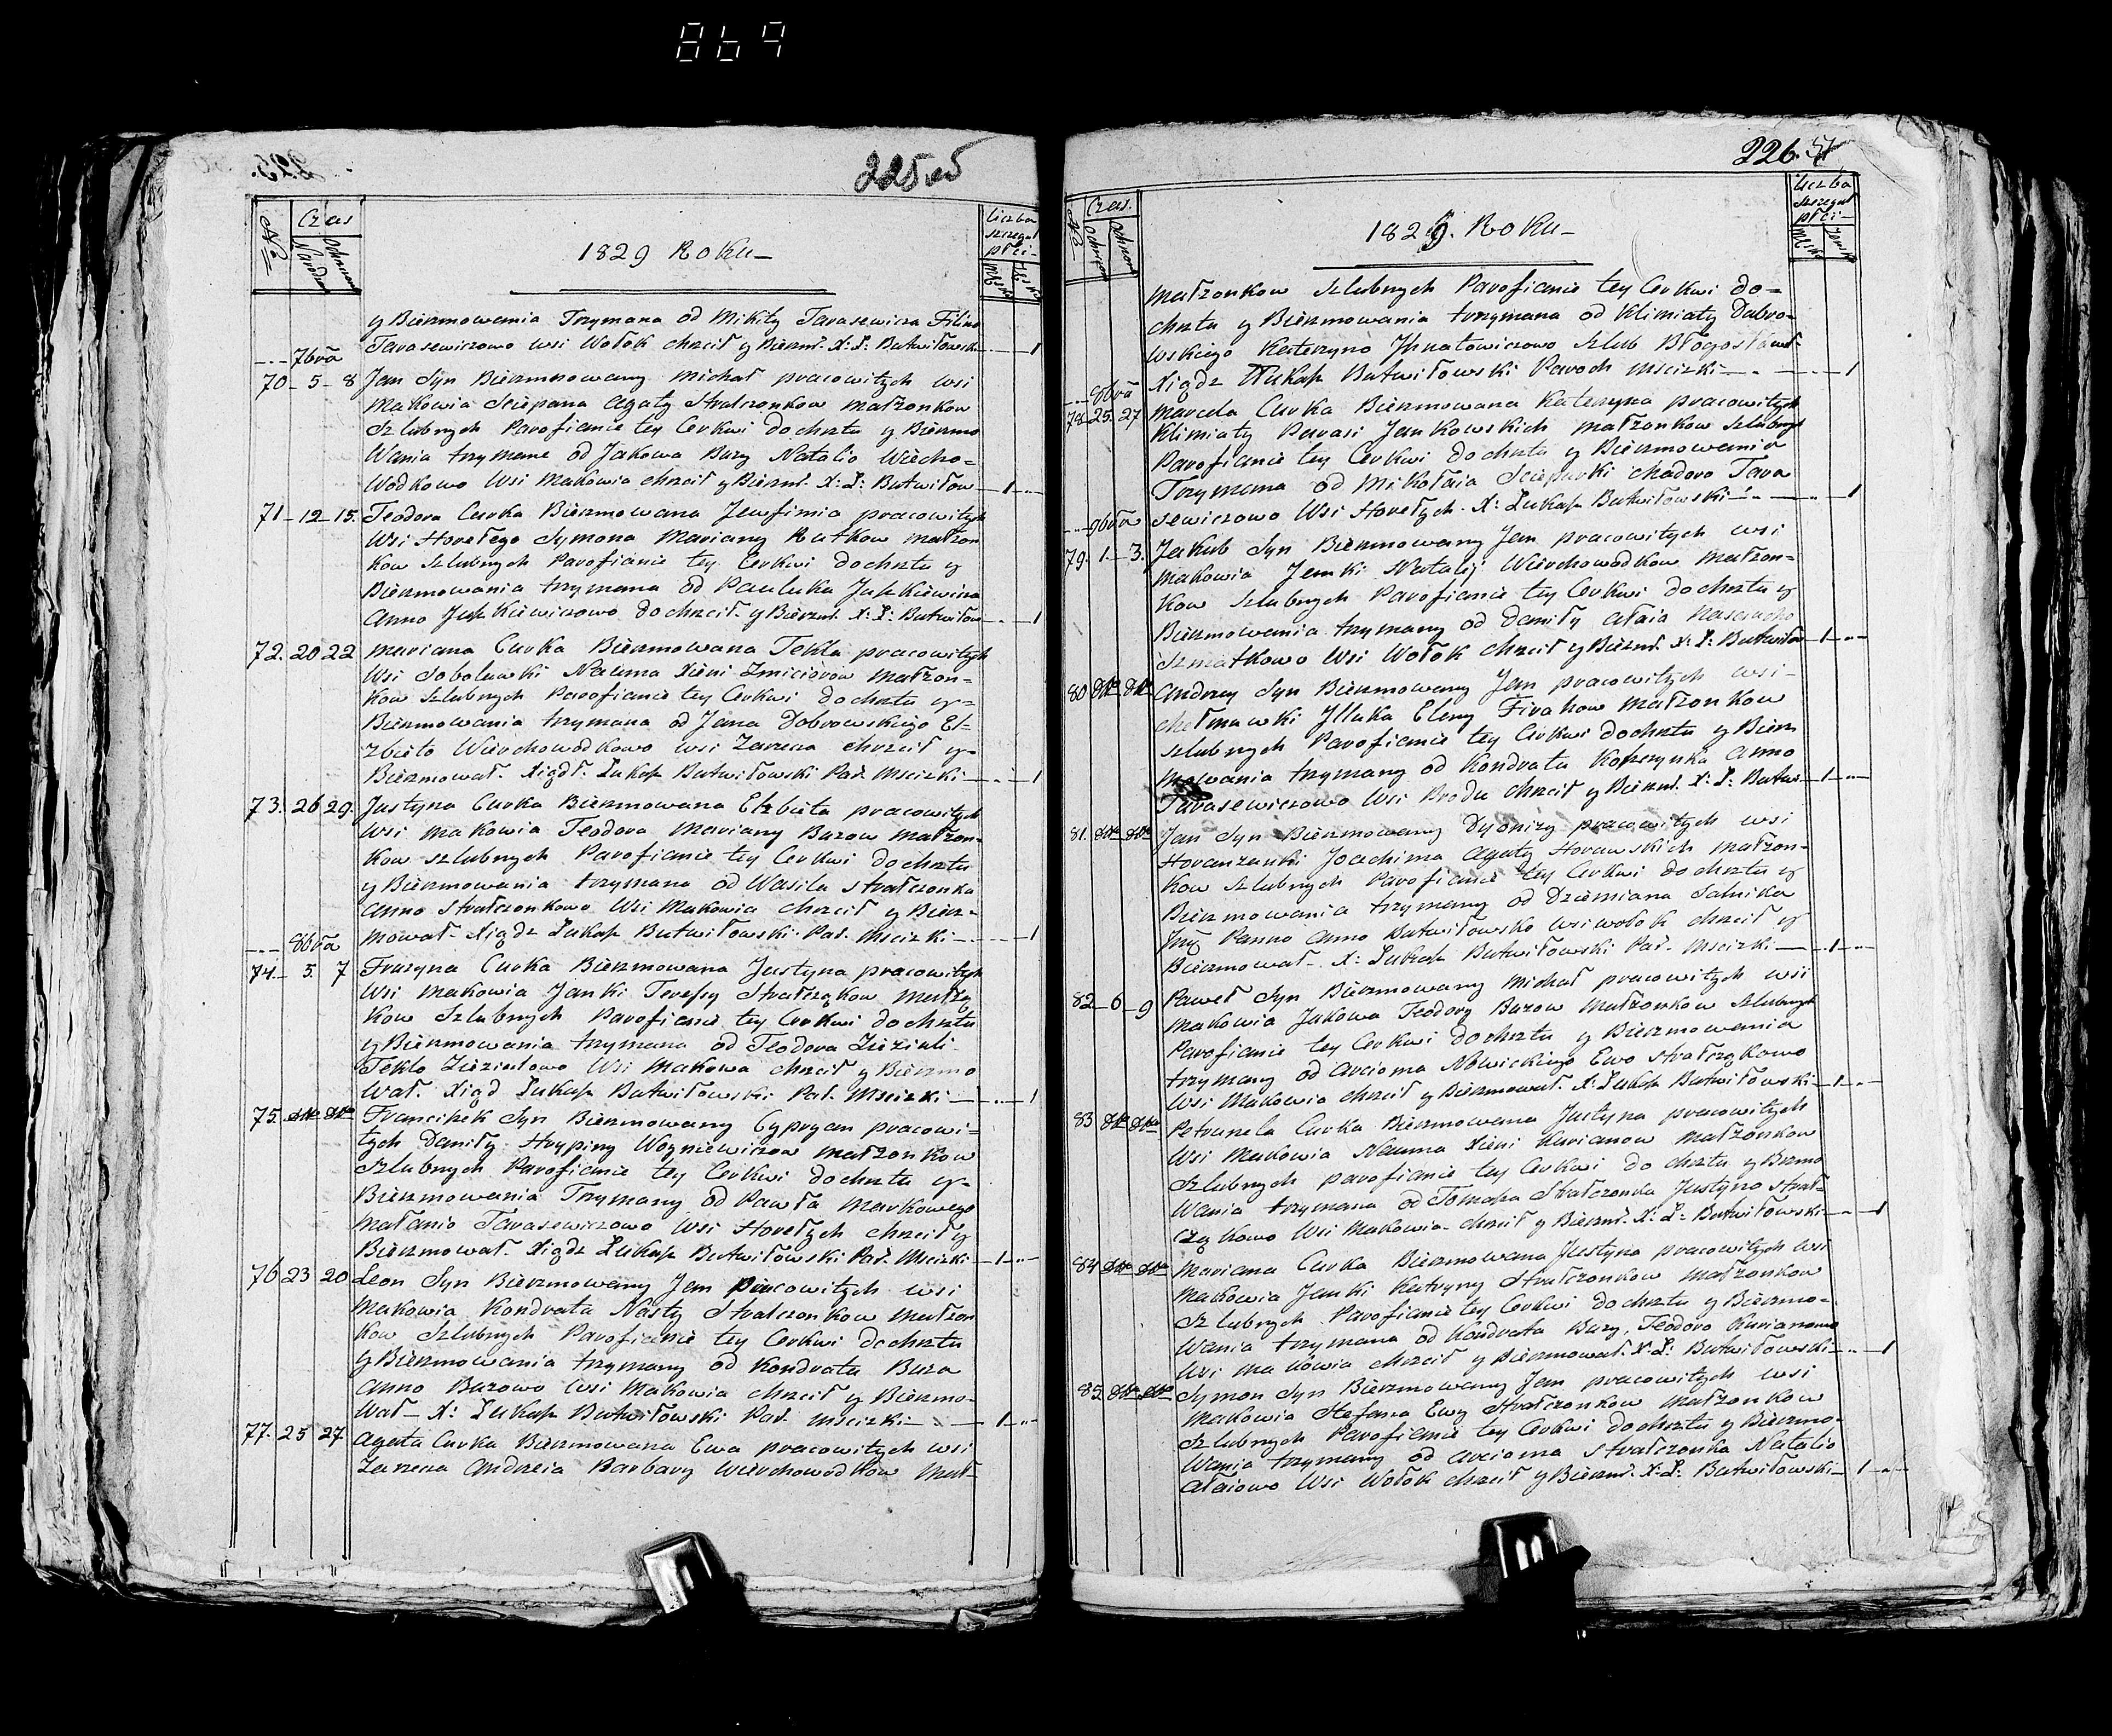 869
225 об
Nº
Czas
Narodz
Ochrzcon
1829 Roku
Liczba
szczegul
płci
męsk
żeńsk
y Bierzmowania Trzymana od Mikity Tarasewicza Filino
7bra
Tarasewiczowo wsi Wołok chrzcił y Bierzm. X: Ł: Butwiłowski 1
70 5 8 Jan Syn Bierzmowany Michał pracowitych wsi
Makowia Sciepana Agaty Strałczonkow małżonkow
Szlubnych Parofianie tey Cerkwi do chrztu y Bierzmo
Wania trzymane od Jakowa Buzy Natalio Wiercho=
Wodkowo Wsi Makowia chrzcił y Bierzm. X: Ł: Butwiłow 1
71 12 15. Teodora Curka Bierzmowana Jewfimia pracowitych
Wsi Horełego Symona Maryany Rutkow małżon
kow Szlubnych Parofianie tey Cerkwi do chrztu y
Bierzmowania trzymana od Pauluka Juszkiewicza
Anno Juszkiewiczowo do chrzcił y Bierzm. X: Ł: Butwiłow 1
72. 20 22 Maryana Curka Bierzmowana Tekla pracowitych
Wsi Sobolewki Nauma Xieni Zmiciorow Małżon-
kow Szlubnych Parofianie tey Cerkwi do chrztu y=
Bierzmowania trzymana od Jana Dobrowskiego El-
zbieto Wierchowodkowo wsi Zarzecza chrzcił y
Bierzmował. Xiądz. Łukasz Butwiłowski Par. Mscizki 1
73. 26 29. Justyna Curka Bierzmowana Elzbieta pracowitych
Wsi Makowia Teodora Maryany Buzow małżon-
kow szlubnych Parofianie tey Cerkwi do chrztu
y Bierzmowania trzymana od Wasila Strałczonka
Anno Strałczonkowo Wsi Makowia chrzcił y Bierz-
8bra
mował. Xiądz Łukasz Butwiłowski Par. Mscizki 1
74. 5. 7 Fruzyna Curka Bierzmowana Justyna pracowitych
Wsi Makowia Janki Teresy Strałcząkow małżą
kow Szlubnych Parofianie tey Cerkwi do chrztu
y Bierzmowania trzymana od Teodora
Teklo Wsi Makowa chrzcił y Bierzmo
Wał. Xiąd Łukasz Butwiłowski Par. Mscizki 1
75. Dto Dto Franciszek Syn Bierzmowany Cypryan pracowi=
tych Daniły Hrypiny Wozniewiczow małżonkow
Szlubnych Parofianie tey Cerkwi do chrztu y=
Bierzmowania Trzymany od Pawła Markowego
Matanio Tarasewiczowo Wsi Horełych chrzcił y
Bierzmował. Xiądz Łukasz Butwiłowski Par. Mscizki 1
76 23 20 Leon Syn Bierzmowany Jan pracowitych wsi
Makowia Kondrata Nasty Strałczonkow Małżon
kow Szlubnych Parofianie tey Cerkwi do chrztu
y Bierzmowania trzymany od Kondrata Buza
Anno Buzowo wsi Makowia chrzcił y Bierzmo-
Wał X: Łukasz Butwiłowski Par. Mscizki 1
77. 25 27 Agata Curka Bierzmowana Ewa pracowitych wsi
Zarzecza Andreia Barbary Wierchowodkow Mał-
226.
Nº
Czas.
Ochrzcon
1829. Roku
Liczba
szczegul
płci
męsk
żeńsk
małżonkow Szlubnych Parofianie tey Cerkwi do=
chrztu y Bierzmowania trzymana od Klimiaty Dabro-
wskiego Katerzyno Jhnatowiczowo Szlub Błogosław
8bra
Xiądz Łukasz Butwiłowski Paroch Mscizki 1
78 25. 27 Marcela Curka Bierzmowana Katerzyna pracowitych
Klimiaty Parasi Jankowskich małżonkow Szlubnych
Parofianie tey Cerkwi do chrztu y Bierzmowania
Trzymana od Mikołaia Chodoro Tara
9bra
sewiczowo Wsi Horełych. X: Łukasz Butwiłowski 1
79. 1. 3. Jakub Syn Bierzmowany Jan pracowitych wsi
Makowia Janki Natalij Wierchowodkow małżon=
kow Szlubnych Parofianie tey Cerkwi do chrztu y
Bierzmowania trzymany od Daniły Ałaia
Szmatkowo Wsi Wołok chrzcił y Bierzm. X: Ł: Butwiłow 1
80 Dto Dto Andrzey Syn Bierzmowany Jan pracowitych wsi
Jlluka Eleny Firahow małżonkow
Szlubnych Parofianie tey Cerkwi do chrztu y Bierz
mowania trzymany od Kondrata Anno
Tarasewiczowo Wsi Brodu chrzcił y Bierzm. X: Ł: Butwi 1
81. Dto Dto Jan Syn Bierzmowany Dyonizy pracowitych wsi
Joachima Agaty Horawskich małżon-
kow Szlubnych Parofianie tey Cerkwi do chrztu y
Bierzmowania trzymany od Dziemiana Salnika
Panno Anno Butwiłowsko wsi Wołok chrzcił y
Bierzmował. X: Łukasz Butwiłowski Par. Mscizki 1
82 6 9 Paweł Syn Bierzmowany Michał pracowitych wsi
Makowia Jakowa Teodory Buzow Małżonkow Szlubnych
Parofianie tey Cerkwi do chrztu y Bierzmowania
trzymany od Arcioma Nowickiego Ewo Strałcząkowo
Wsi Makowia chrzcił y Bierzmował. X: Łukasz Butwiłowski 1
83 Dto Dto Petrunela Curka Bierzmowana Justyna pracowitych
Wsi Makowia Nauma Xieni Kurianow małżonkow
Szlubnych parofianie tey Cerkwi do chrztu y Bierzmo
Wania trzymana od Tomasza Strałczonka Justyno Strał-
cząkowo Wsi Makowia chrzcił y Bierzm. X: Ł: Butwiłowski 1
84 Dto Dto Mariana Curka Bierzmowana Justyna pracowitych wsi
Makowia Janki Katryny Strałczonkow małżonkow
Szlubnych Parofianie tey Cerkwi do chrztu y Bierzmo-
Wania trzymana od Kondrata Buzy, Teodoro Kurianowo
Wsi Makowia chrzcił y Bierzmował. X: Ł: Butwiłowski 1
85 Dto Dto Symon Syn Bierzmowany Jan pracowitych wsi
Makowia Stefana Ewy Strałczonkow małżonkow
Szlubnych Parofianie tey Cerkwi do chrztu y Bierzmo-
Wania trzymany od Arcioma Strałczonka Natalio
Ałaiowo Wsi Wołok chrzcił y Bierzm. X: Ł: Butwiłowski 1